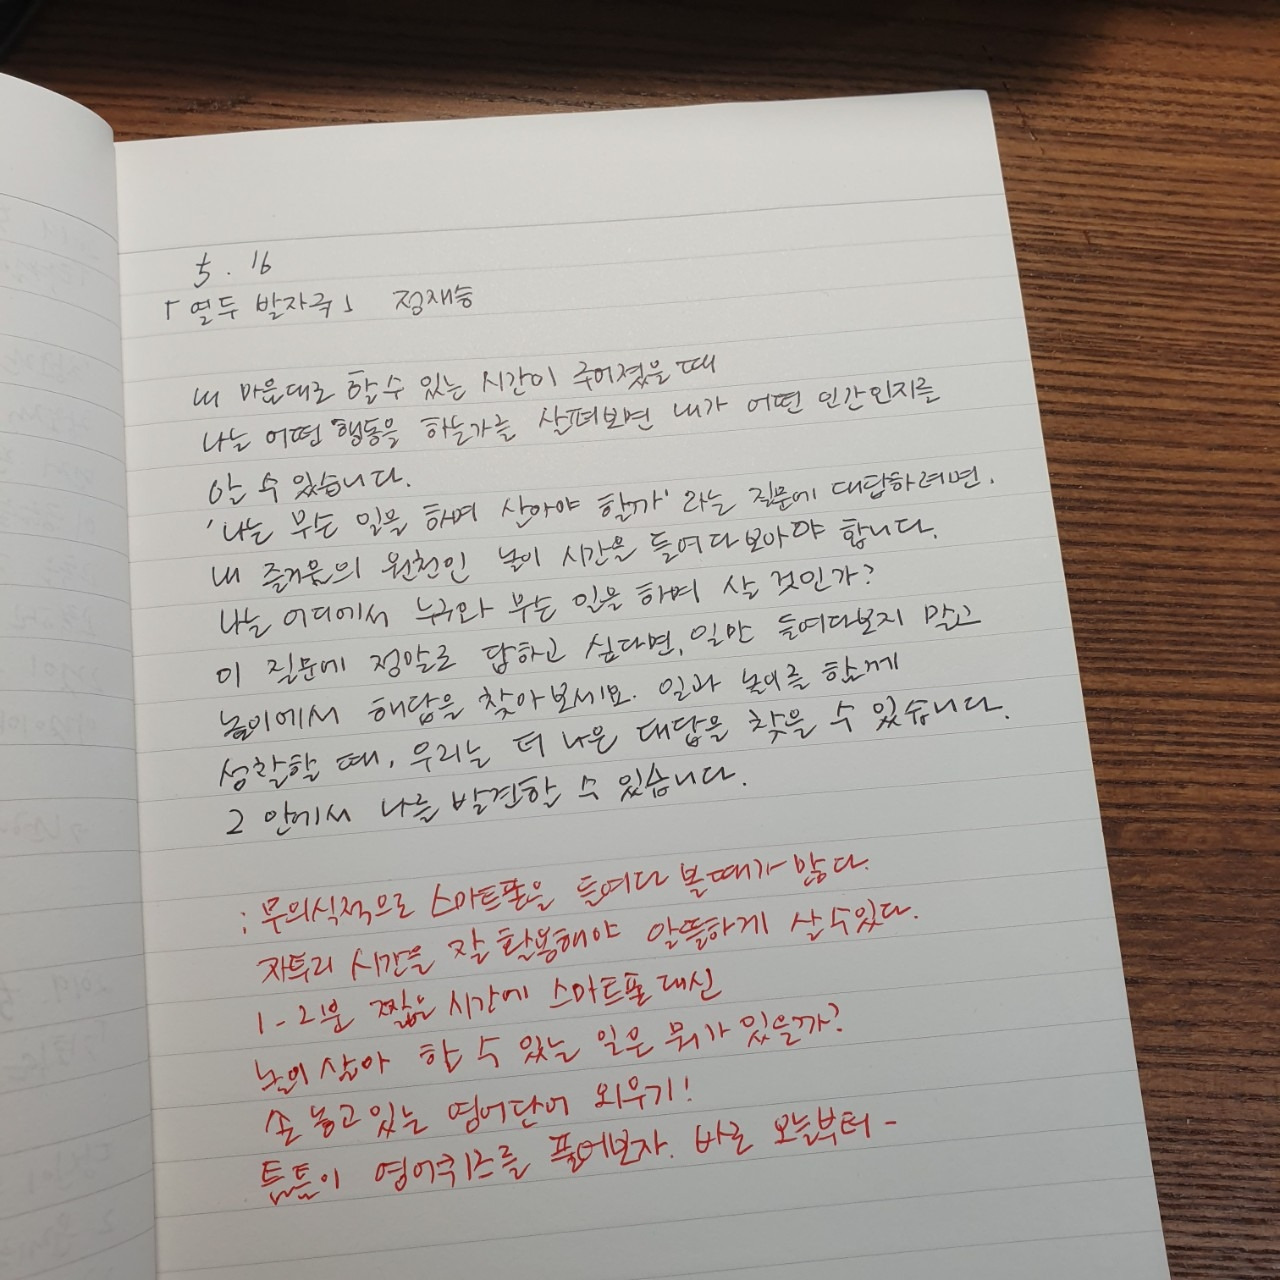 5. 16
「열두 발자국」 정재승
내 마음대로 할 수 있는 시간이 주어졌을 때
나는 어떤 행동을 하는가를 살펴보면 내가 어떤 인간인지를
알 수 있습니다.
'나는 무슨 일을 하며 살아야 할까' 라는 질문에 대답하려면,
내 즐거움의 원천인 놀이 시간을 들여다보아야 합니다.
나는 어디에서 누구와 무슨 일을 하며 살 것인가?
이 질문에 정말로 답하고 싶다면, 일만 들여다보지 말고
놀이에서 해답을 찾아보세요. 일과 놀이를 함께
성찰할 때, 우리는 더 나은 대답을 찾을 수 있습니다.
그 안에서 나를 발견할 수 있습니다.
: 무의식적으로 스마트폰을 들여다 볼때가 많다.
자투리 시간을 잘 활용해야 알뜰하게 살 수있다.
1-2분 짧은 시간에 스마트폰 대신
놀이 삼아 할 수 있는 일은 뭐가 있을까?
손 놓고 있는 영어단어 외우기!
틈틈이 영어퀴즈를 풀어보자. 바로 오늘부터 -